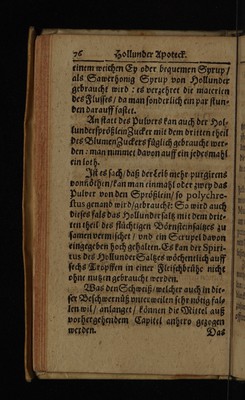 76 Hollunder Apoteck.
einem weichen Ey oder bequemen Syrup /
als Sawerhonig Syrup von Hollunder
gebraucht wird : es verzehret die materien
des Flusses / da man sonderlich ein par stun-
den darauff fastet.
An statt des Pulvers kan auch der Hol-
lundersprößlein Zucker mit dem dritten theil
des Blumen Zuckers füglich gebraucht wer-
den : man nimmet davon auff ein jedesmahl
ein loth.
Ist es sach / daß der Leib mehr purgirens
vonnöthen / kan man einmahl oder zwey das
Pulver von den Sprößlein / so polychre-
stus genand wird / gebrauchē: So wird auch
dieses fals das Hollundersaltz mit dem drit-
ten theil des flüchtigen Börnsteinsaltzes zu
samen vermischet / und ein Scrupel davon
eingegeben hoch gehalten. Es kan der Spiri-
tus des Hollunder Saltzes wöchentlich auff
sechs Tropffen in einer Fleischbrühe nicht
ohne nutzen gebraucht werden.
Was den Schweiß / welcher auch in die-
ser Beschwernüß unterweilen sehr nötig fal-
len wil / anlanget / können die Mittel auß
vorhergehendem Capitel anhero gezogen
werden. Das